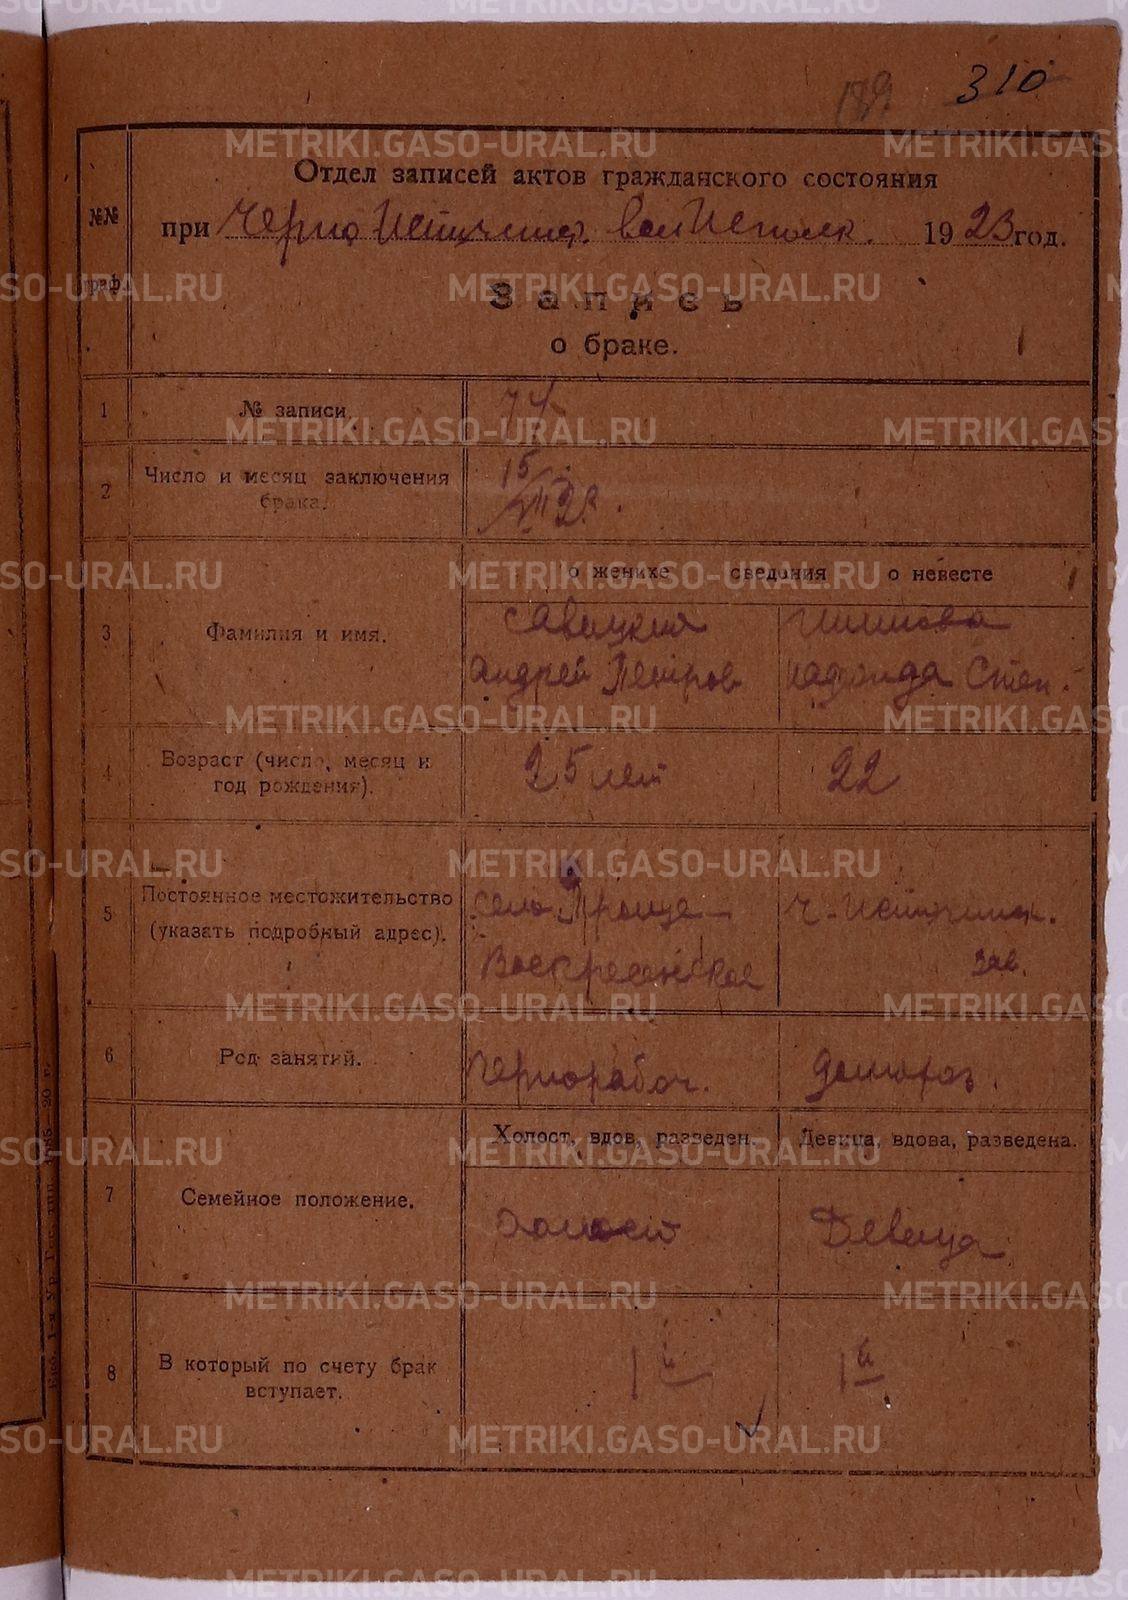 310
Отдел записей актов гражданского состояния
№№ граф.
при Черно Источинс. вол Исполк. 1923 год.
Запись
о браке.
1 № записи 74
2 Число и месяц заключения брака. 15
о женихе сведения о невесте
3 Фамилия и имя.
Савицкий
Андрей Петров Надежда Степ.
4 Возраст (число, месяц и год рождения). 25 лет 22
5 Постоянное местожительство (указать подробный адрес).
село Троице- Ч-Источинск.
Воскресенское зав.
6 Род занятий. чернорабоч. домохоз.
Холост, вдов, разведен. Девица, вдова, разведена.
7 Семейное положение. холост Девица
8 В который по счету брак вступает. 1й 1й
METRIKI.GASO-URAL.RU